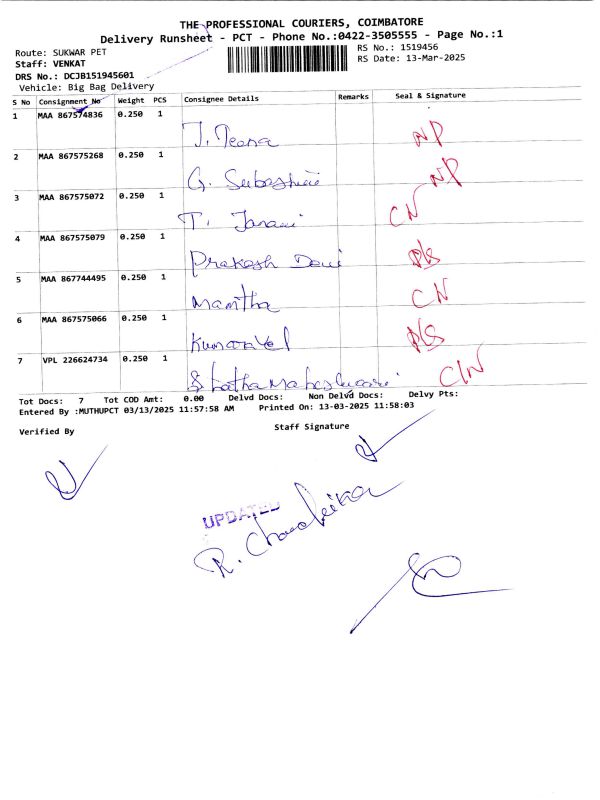 THE PROFESSIONAL COURIERS, COIMBATORE
Delivery Runsheet - PCT - Phone No.:0422-3505555 - Page No.:1
Route: SUKWAR PET
RS No.: 1519456
Staff: VENKAT
RS Date: 13-Mar-2025
DRS No.: DCJB151945601
Vehicle: Big Bag Delivery
S No Consignment No Weight PCS Consignee Details Remarks Seal & Signature
1 MAA 867574836 0.250 1
J. Teena NP
2 MAA 867575268 0.250 1
G. Subashini NP
3 MAA 867575072 0.250 1
T. Janani CN
4 MAA 867575079 0.250 1
Prakash Devi
5 MAA 867744495 0.250 1
Mamtha CN
6 MAA 867575066 0.250 1
Kumaravel
7 VPL 226624734 0.250 1
C/N
Tot Docs: 7 Tot COD Amt: 0.00 Delvd Docs: Non Delvd Docs: Delvy Pts:
Entered By :MUTHUPCT 03/13/2025 11:57:58 AM Printed On: 13-03-2025 11:58:03
Verified By Staff Signature
UPDATED
R.